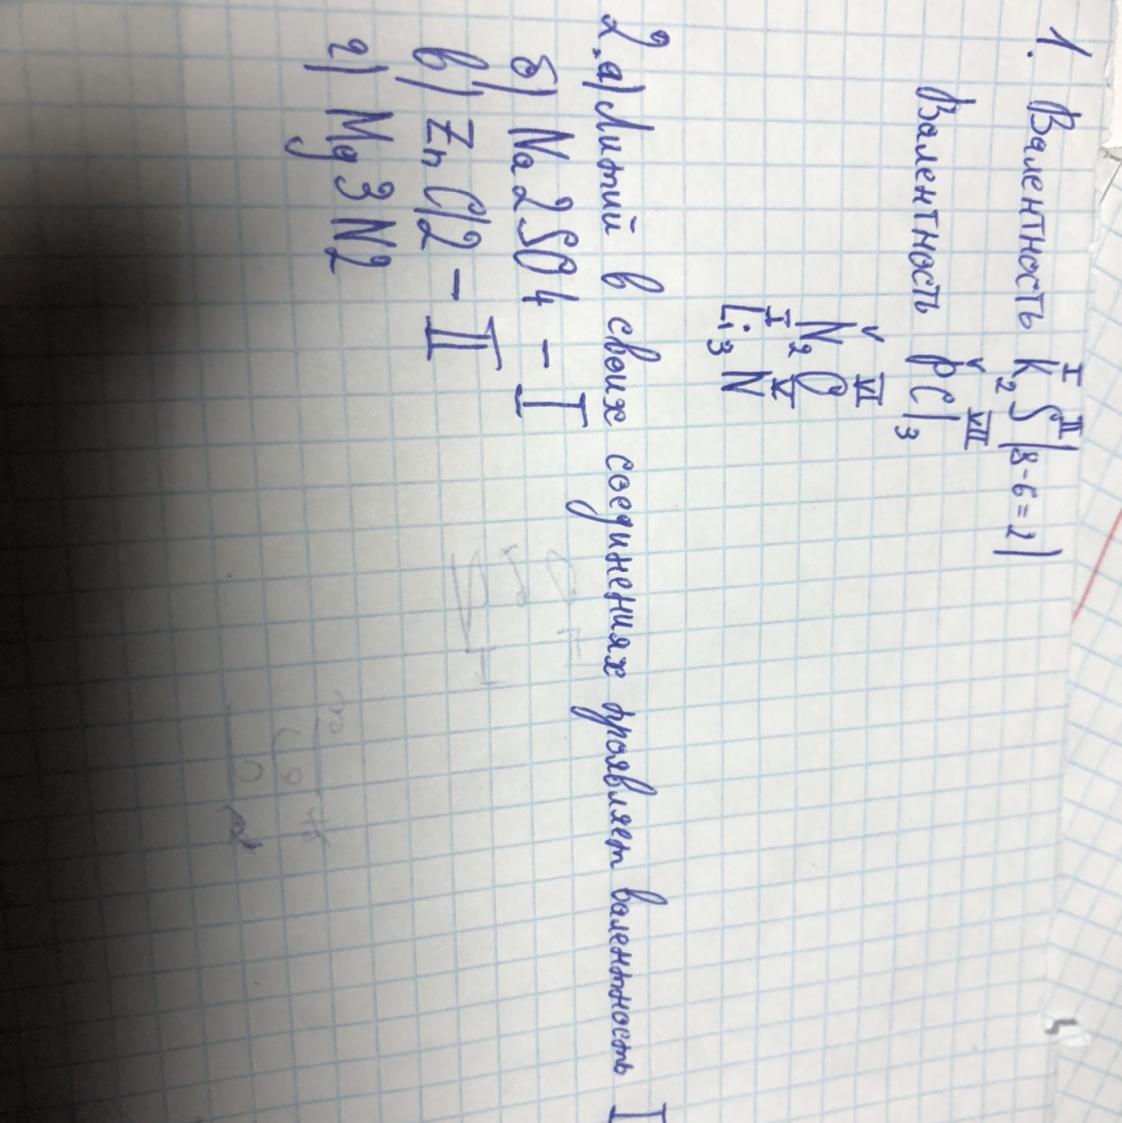 1. Валентность K₂S (8-6=2) I II
Валентность PCl₃ V VII
N₂O V VI
Li₃N I V
2. а) Литий в своих соединениях проявляет валентность I
б) Na2SO4 - I
в) ZnCl2 - II
г) Mg3N2